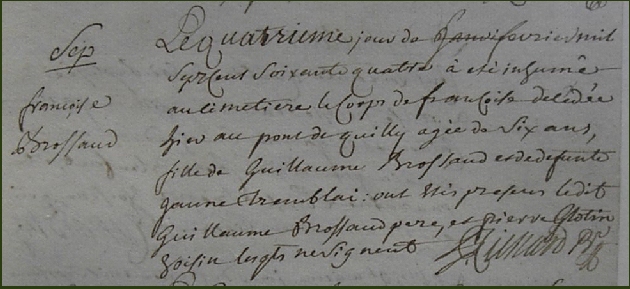 Sep
françoise
Brossaud
Le quatrieme jour de fevrier mil
sept cent soixante quatre à eté inhumé
au cimetiere le Corps de françoise decédée
hier au pont de quilly agée de six ans,
fille de Guillaume Brossaud et de defunte
jeanne Tremblai : ont eté presens ledit
Guillaume Brossaud pere, et pierre Glotin
voisin lesqls ne signent